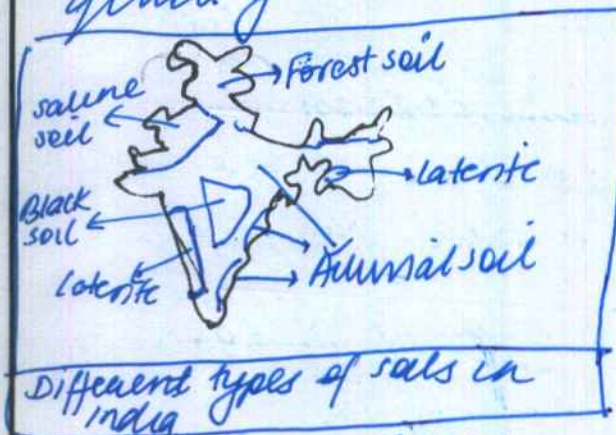 Forest soil
saline
soil
Black
soil
laterite
laterite
Alluvial soil
Different types of soils in
india